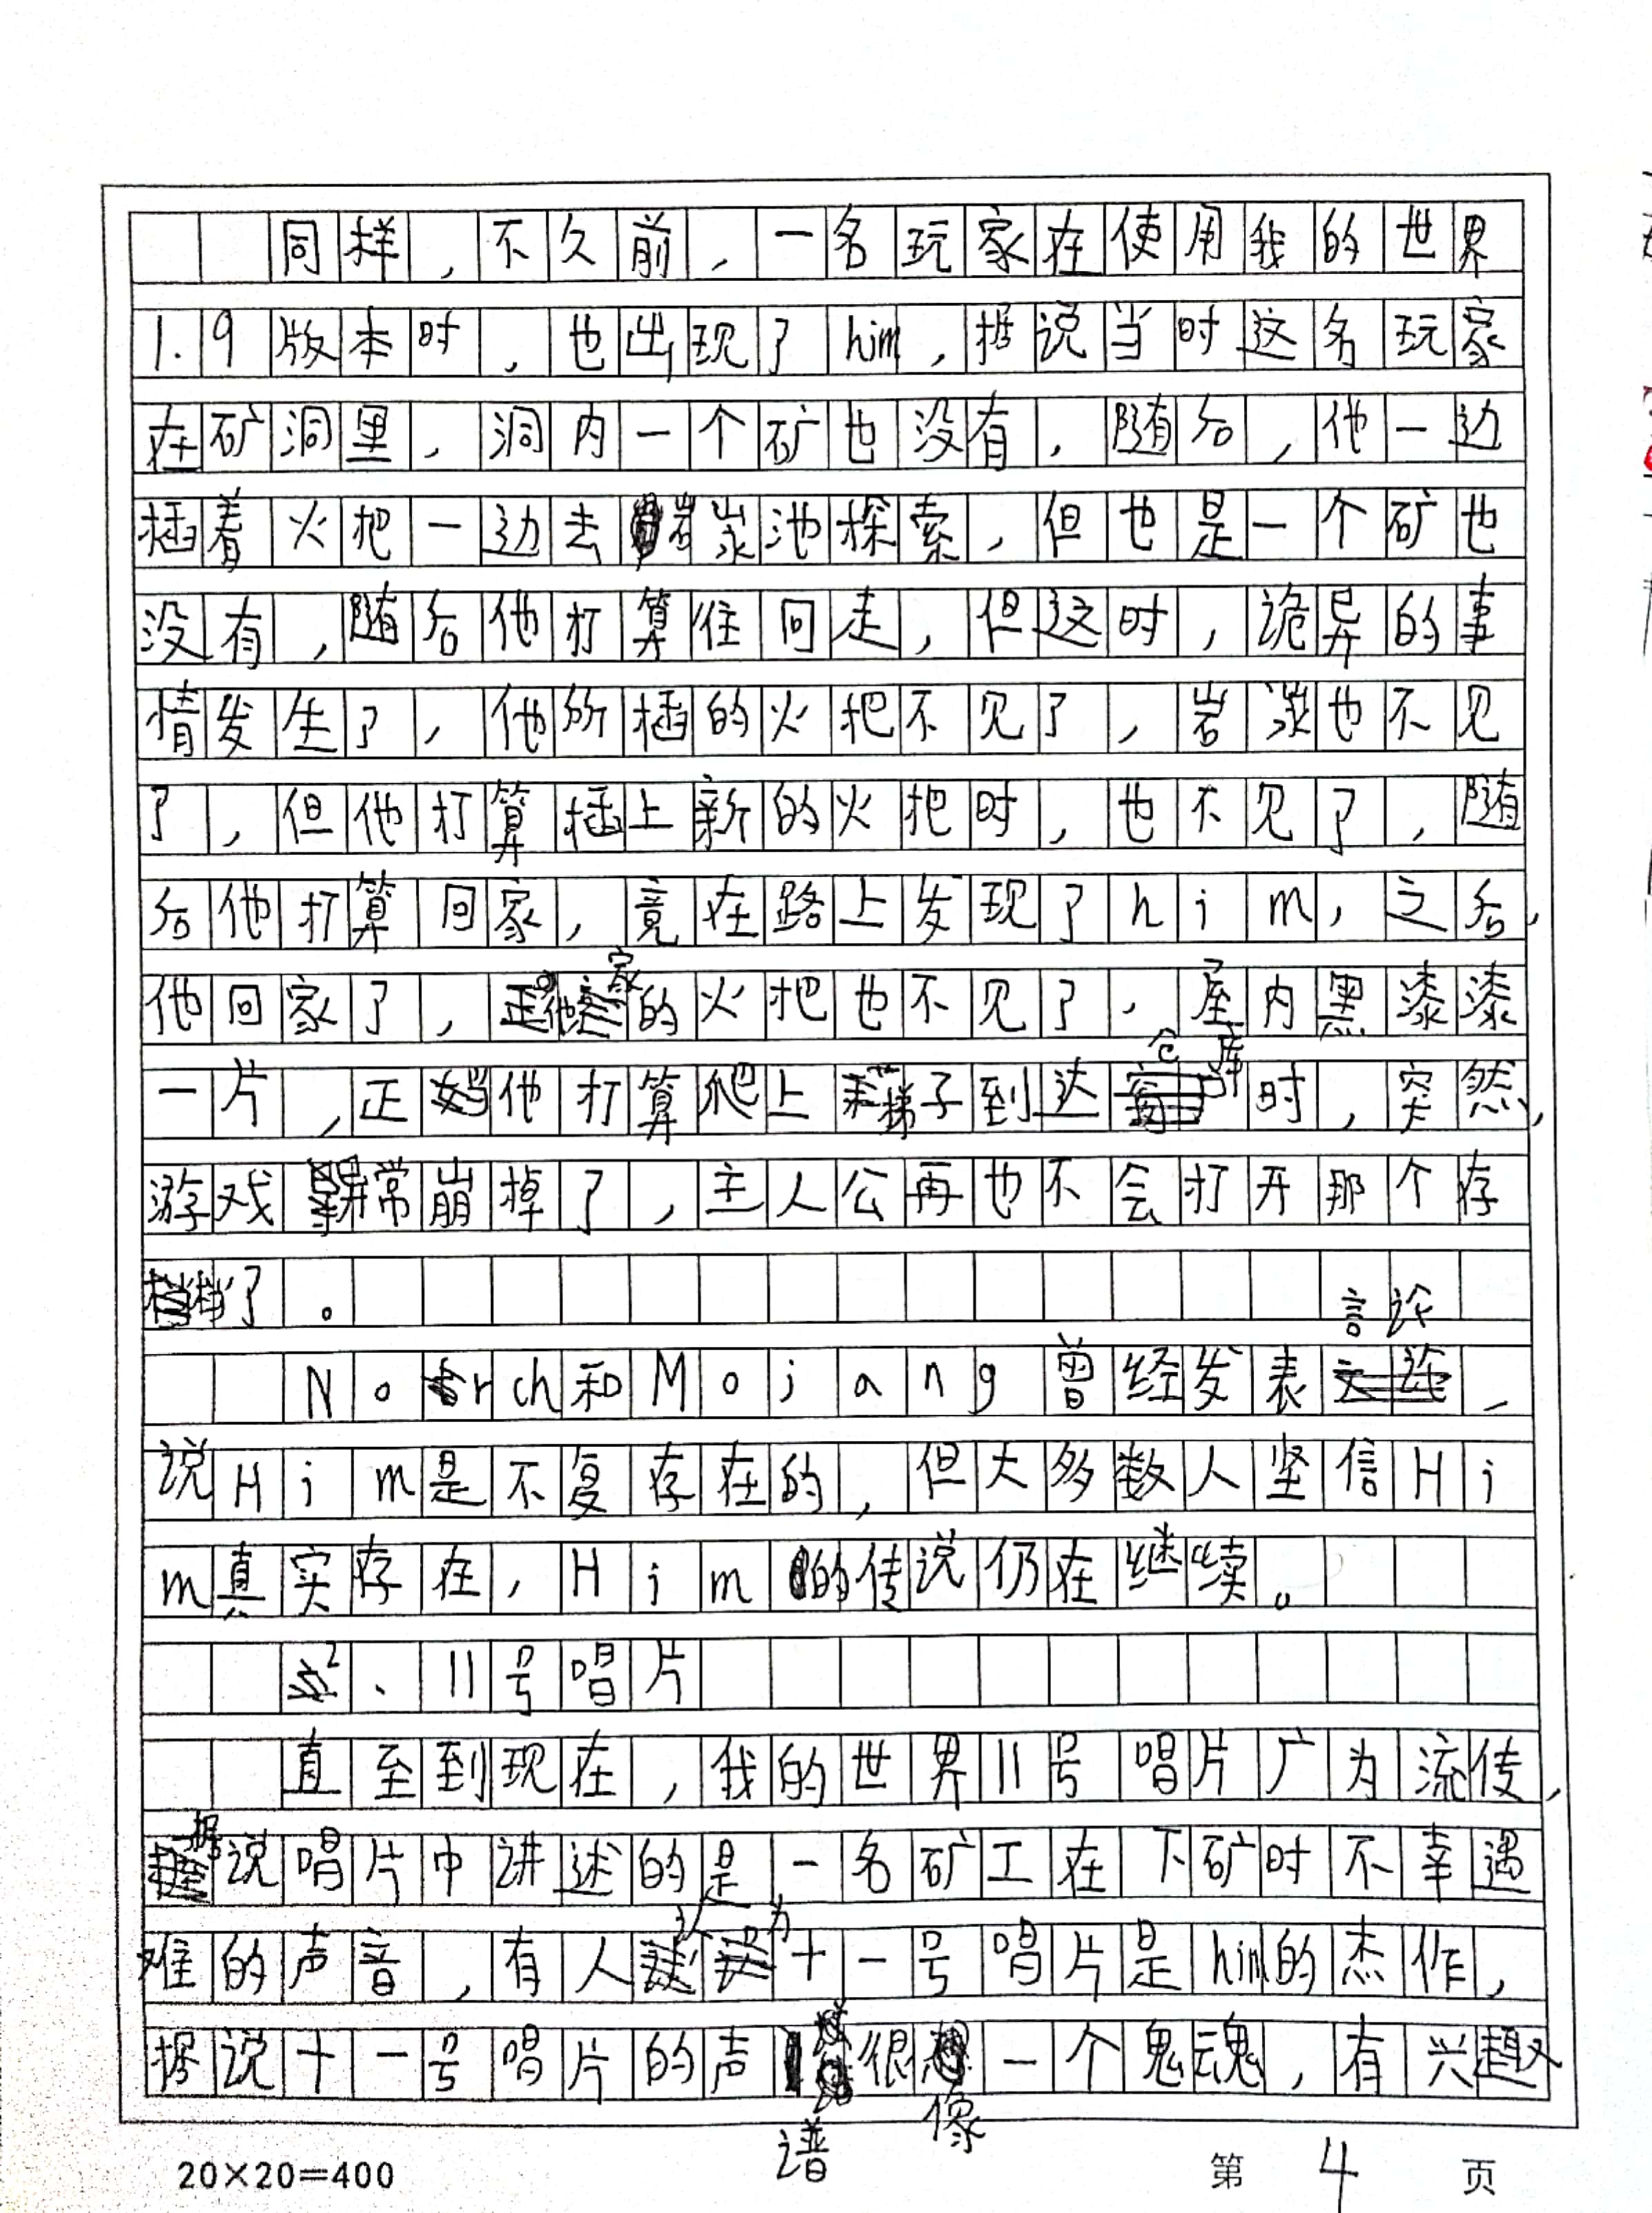 同样，不久前，一名玩家在使用我的世界
1.9版本时，也出现了him，据说当时这名玩家
在矿洞里，洞内一个矿也没有，随后，他一边
插着火把一边去岩浆池探索，但也是一个矿也
没有，随后他打算往回走，但这时，诡异的事
情发生了，他所插的火把不见了，岩浆也不见
了，但他打算插上新的火把时，也不见了，随
后他打算回家，竟在路上发现了him，之后，
他回家了，家的火把也不见了，屋内黑漆漆
一片，正当他打算爬上梯子到达仓库时，突然，
游戏异常崩掉了，主人公再也不会打开那个存
档了。
Norch和Mojang曾经发表言论，
说Him是不复存在的，但大多数人坚信Hi
m真实存在，Him的传说仍在继续。
2、11号唱片
直至到现在，我的世界11号唱片广为流传，
据说唱片中讲述的是一名矿工在下矿时不幸遇
难的声音，有人认为十一号唱片是him的杰作，
据说十一号唱片的声谱很像一个鬼魂，有兴趣
20×20=400 第 4 页